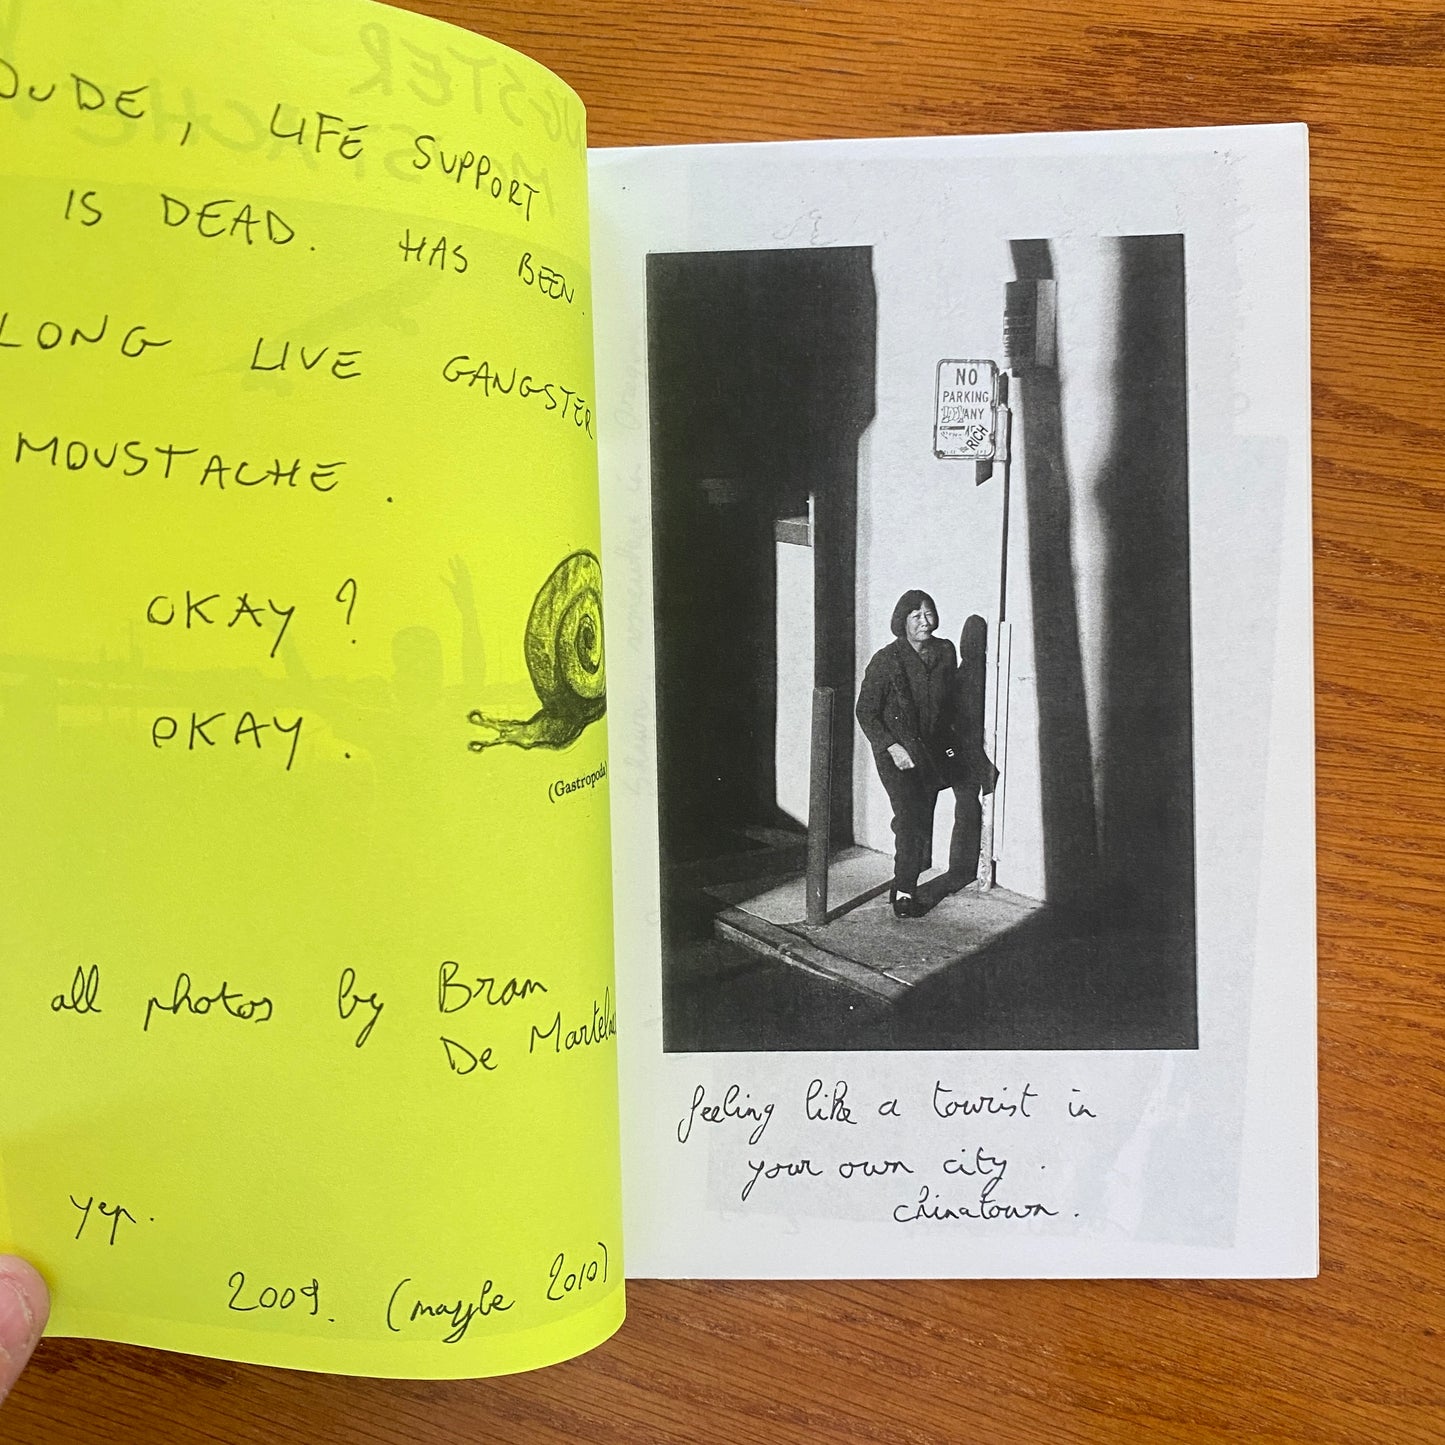 DUDE, LIFE SUPPORT
IS DEAD. HAS BEEN.
LONG LIVE GANGSTER
MOUSTACHE.
OKAY?
OKAY.
(Gastropoda)
all photos by Bram
De
yep.
2009. (maybe 2010)
NO
PARKING
ANY
RICH
feeling like a tourist in
your own city.
chinatown.